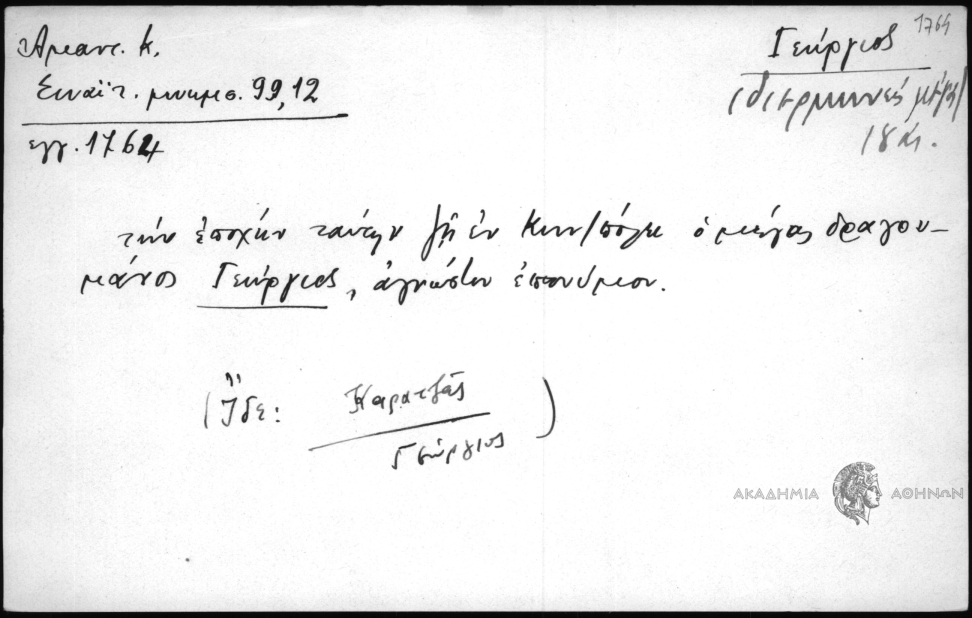 1764
Ἀμαντ. Κ.
Γεώργιος
Σιναϊτ. μνημεῖα 99,12
(διερμηνεύς μέγας)
εγγ. 1764
18 αἰ.
τὴν ἐποχὴν ταύτην ζῇ ἐν Κων/πόλει ὁ μέγας δραγου-
μάνος Γεώργιος, ἀγνώστου ἐπωνύμου.
(Ἴδε: Καρατζᾶς)
Γεώργιος
ΑΚΑΔΗΜΙΑ ΑΘΗΝΩΝ